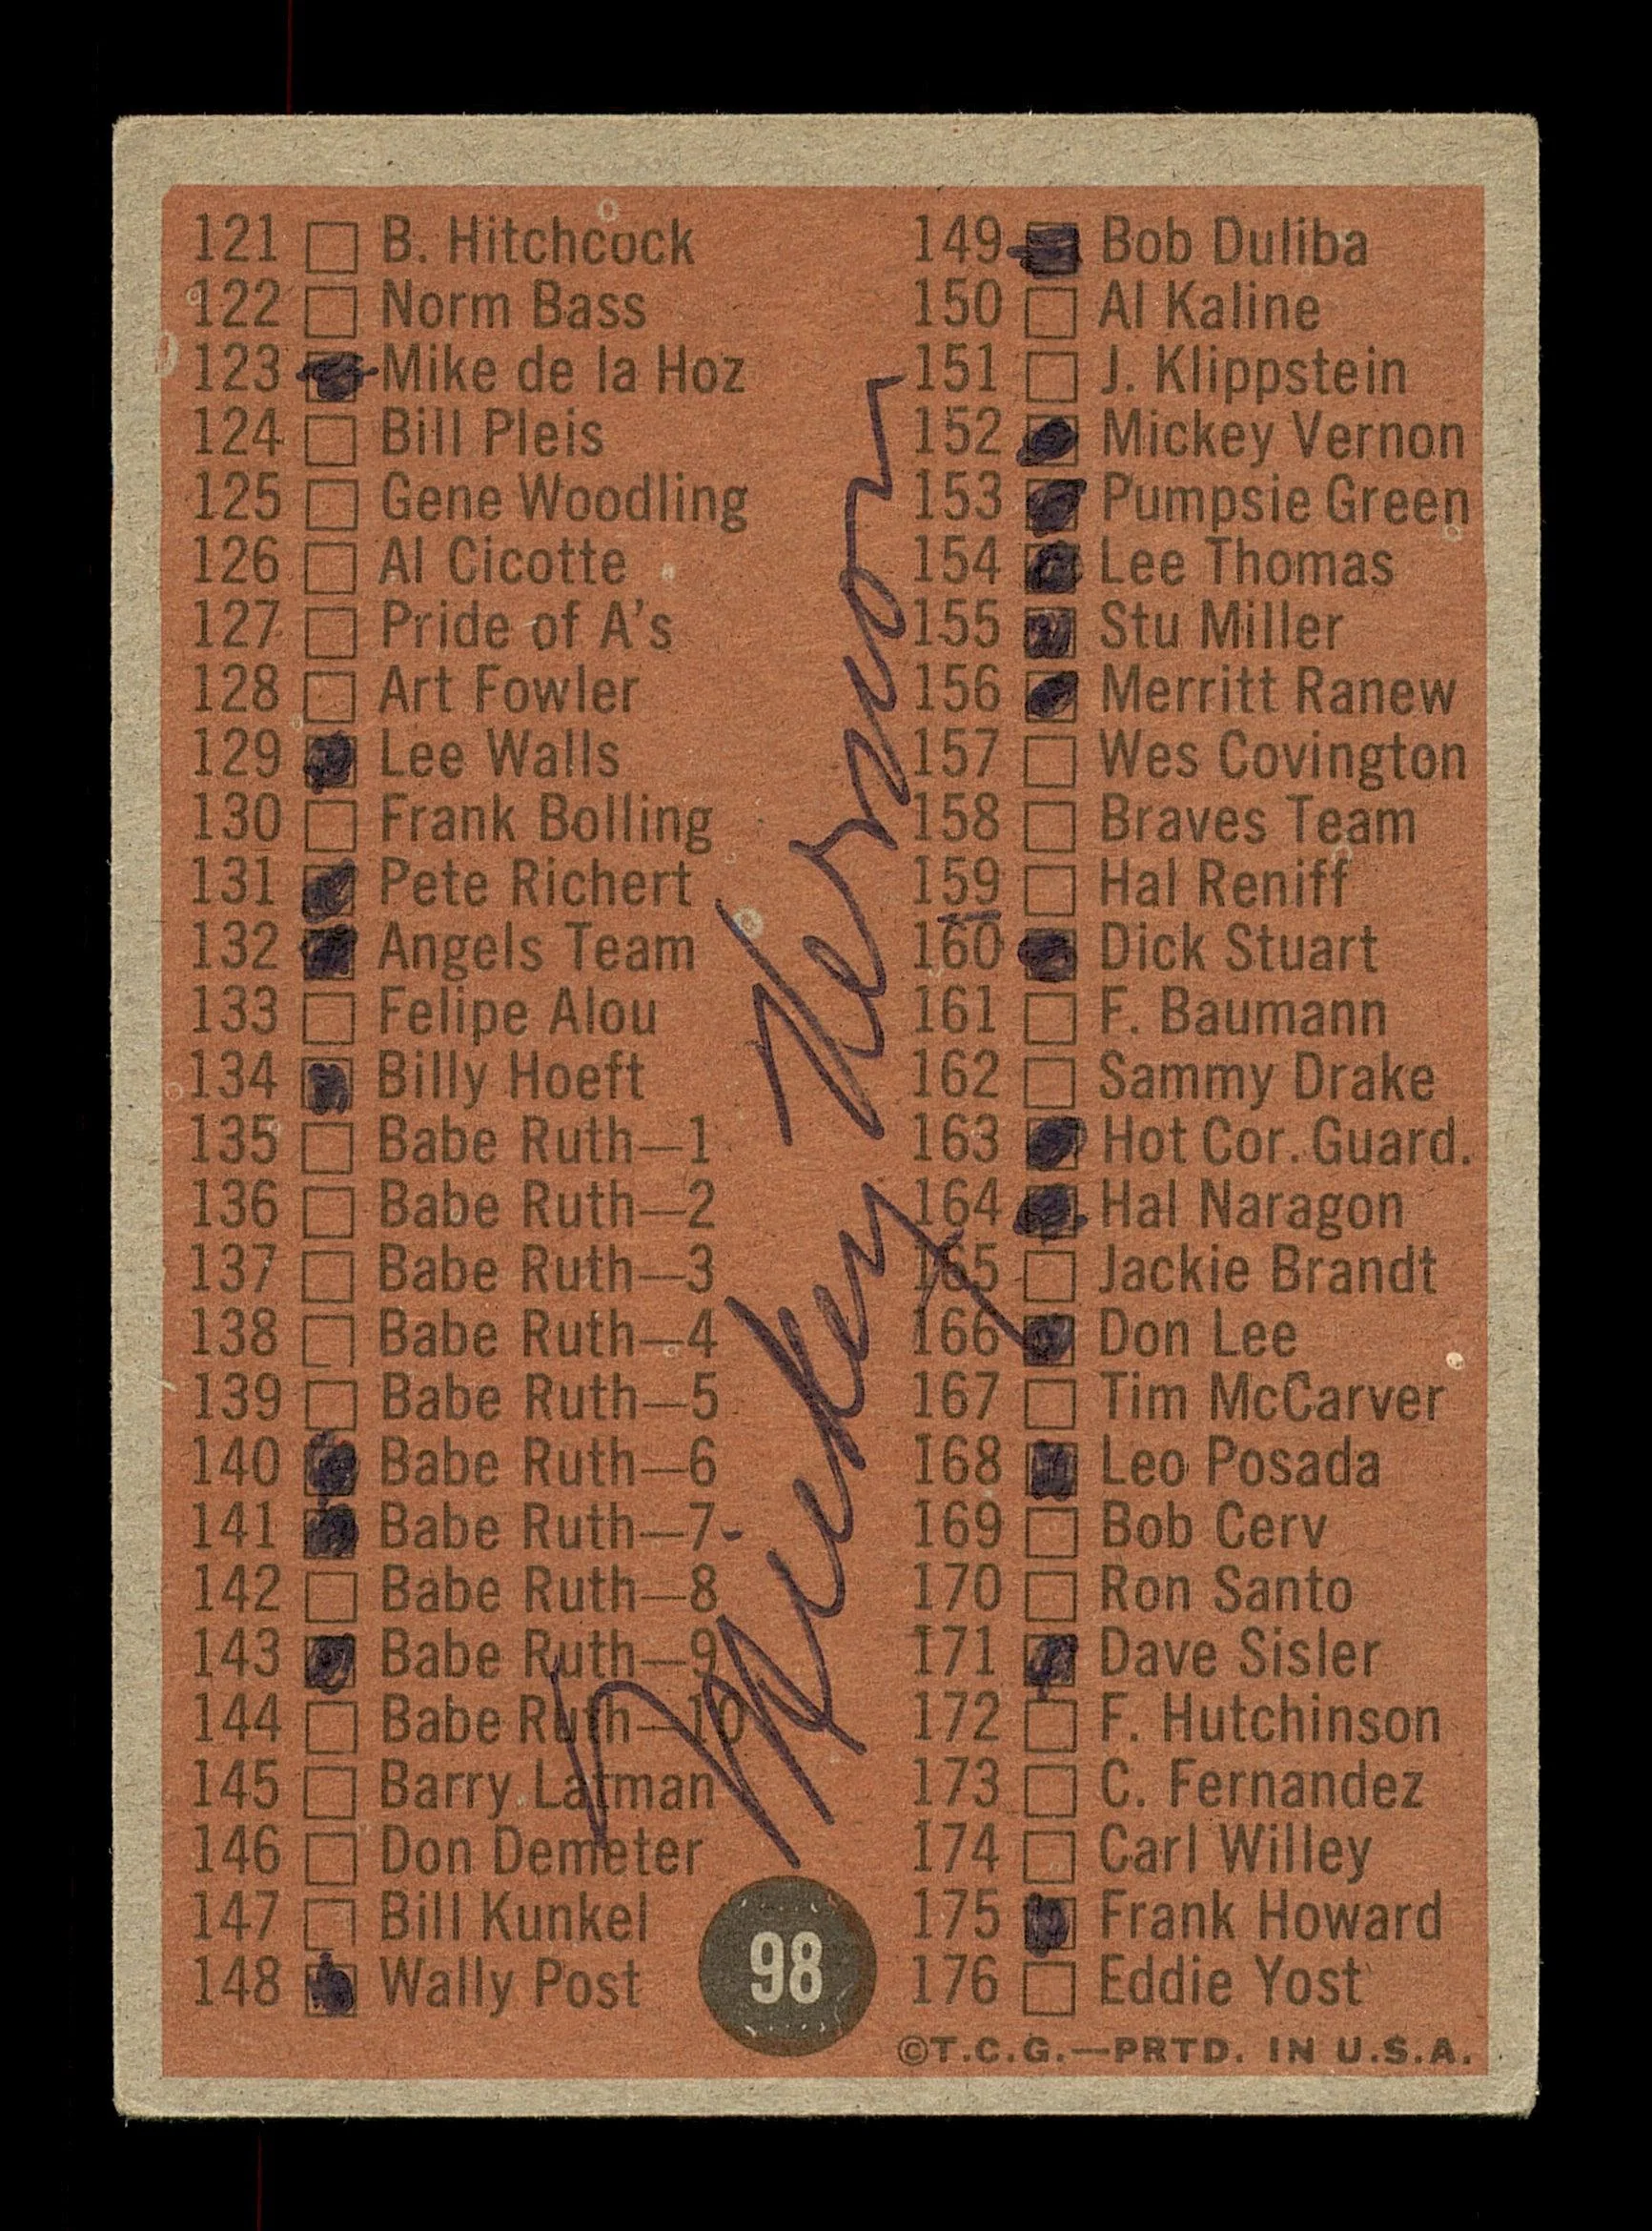 121 B. Hitchcock
122 Norm Bass
123 Mike de la Hoz
124 Bill Pleis
125 Gene Woodling
126 Al Cicotte
127 Pride of A's
128 Art Fowler
129 Lee Walls
130 Frank Bolling
131 Pete Richert
132 Angels Team
133 Felipe Alou
134 Billy Hoeft
135 Babe Ruth—1
136 Babe Ruth—2
137 Babe Ruth—3
138 Babe Ruth—4
139 Babe Ruth—5
140 Babe Ruth—6
141 Babe Ruth—7
142 Babe Ruth—8
143 Babe Ruth—9
144 Babe Ruth—10
145 Barry Latman
146 Don Demeter
147 Bill Kunkel
148 Wally Post
Mickey Vernon
98
149 Bob Duliba
150 Al Kaline
151 J. Klippstein
152 Mickey Vernon
153 Pumpsie Green
154 Lee Thomas
155 Stu Miller
156 Merritt Ranew
157 Wes Covington
158 Braves Team
159 Hal Reniff
160 Dick Stuart
161 F. Baumann
162 Sammy Drake
163 Hot Cor. Guard.
164 Hal Naragon
165 Jackie Brandt
166 Don Lee
167 Tim McCarver
168 Leo Posada
169 Bob Cerv
170 Ron Santo
171 Dave Sisler
172 F. Hutchinson
173 C. Fernandez
174 Carl Willey
175 Frank Howard
176 Eddie Yost
©T.C.G.—PRTD. IN U.S.A.